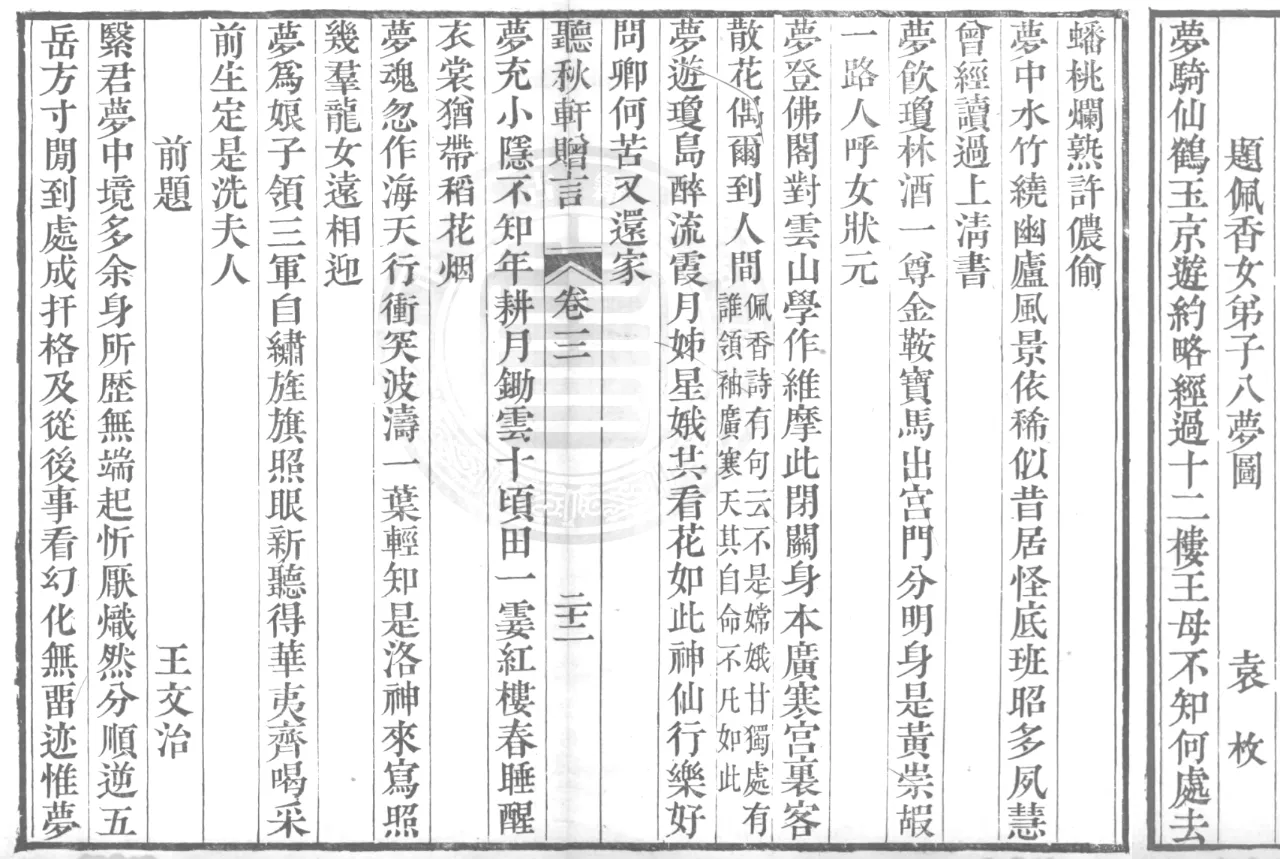 題佩香女弟子八夢圖　袁枚
夢騎仙鶴玉京遊約略經過十二樓王母不知何處去
蟠桃爛熟許儂偷
夢中水竹繞幽廬風景依稀似昔居怪底班昭多夙慧
曾經讀過上淸書
夢飲瓊林酒一尊金鞍寶馬出宮門分明身是黃崇嘏
一路人呼女狀元
夢登佛閣對雲山學作維摩此閉關身本廣寒宮裏客
散花偶爾到人間佩香詩有句云不是嫦娥甘獨處有
誰領袖廣寒天其自命不凡如此
夢遊瓊島醉流霞月姊星娥共看花如此神仙行樂好
問卿何苦又還家
聽秋軒贈言　卷三　二十二
夢充小隱不知年耕月鋤雲十頃田一霎紅樓春睡醒
衣裳猶帶稻花烟
夢魂忽作海天行衝突波濤一葉輕知是洛神來寫照
幾羣龍女遠相迎
夢爲娘子領三軍自繡旌旗照眼新聽得華夷齊喝采
前生定是洗夫人
前題　王文治
繄君夢中境多余身所歷無端起忻厭熾然分順逆五
岳方寸閒到處成扞格及從後事看幻化無畱迹惟夢